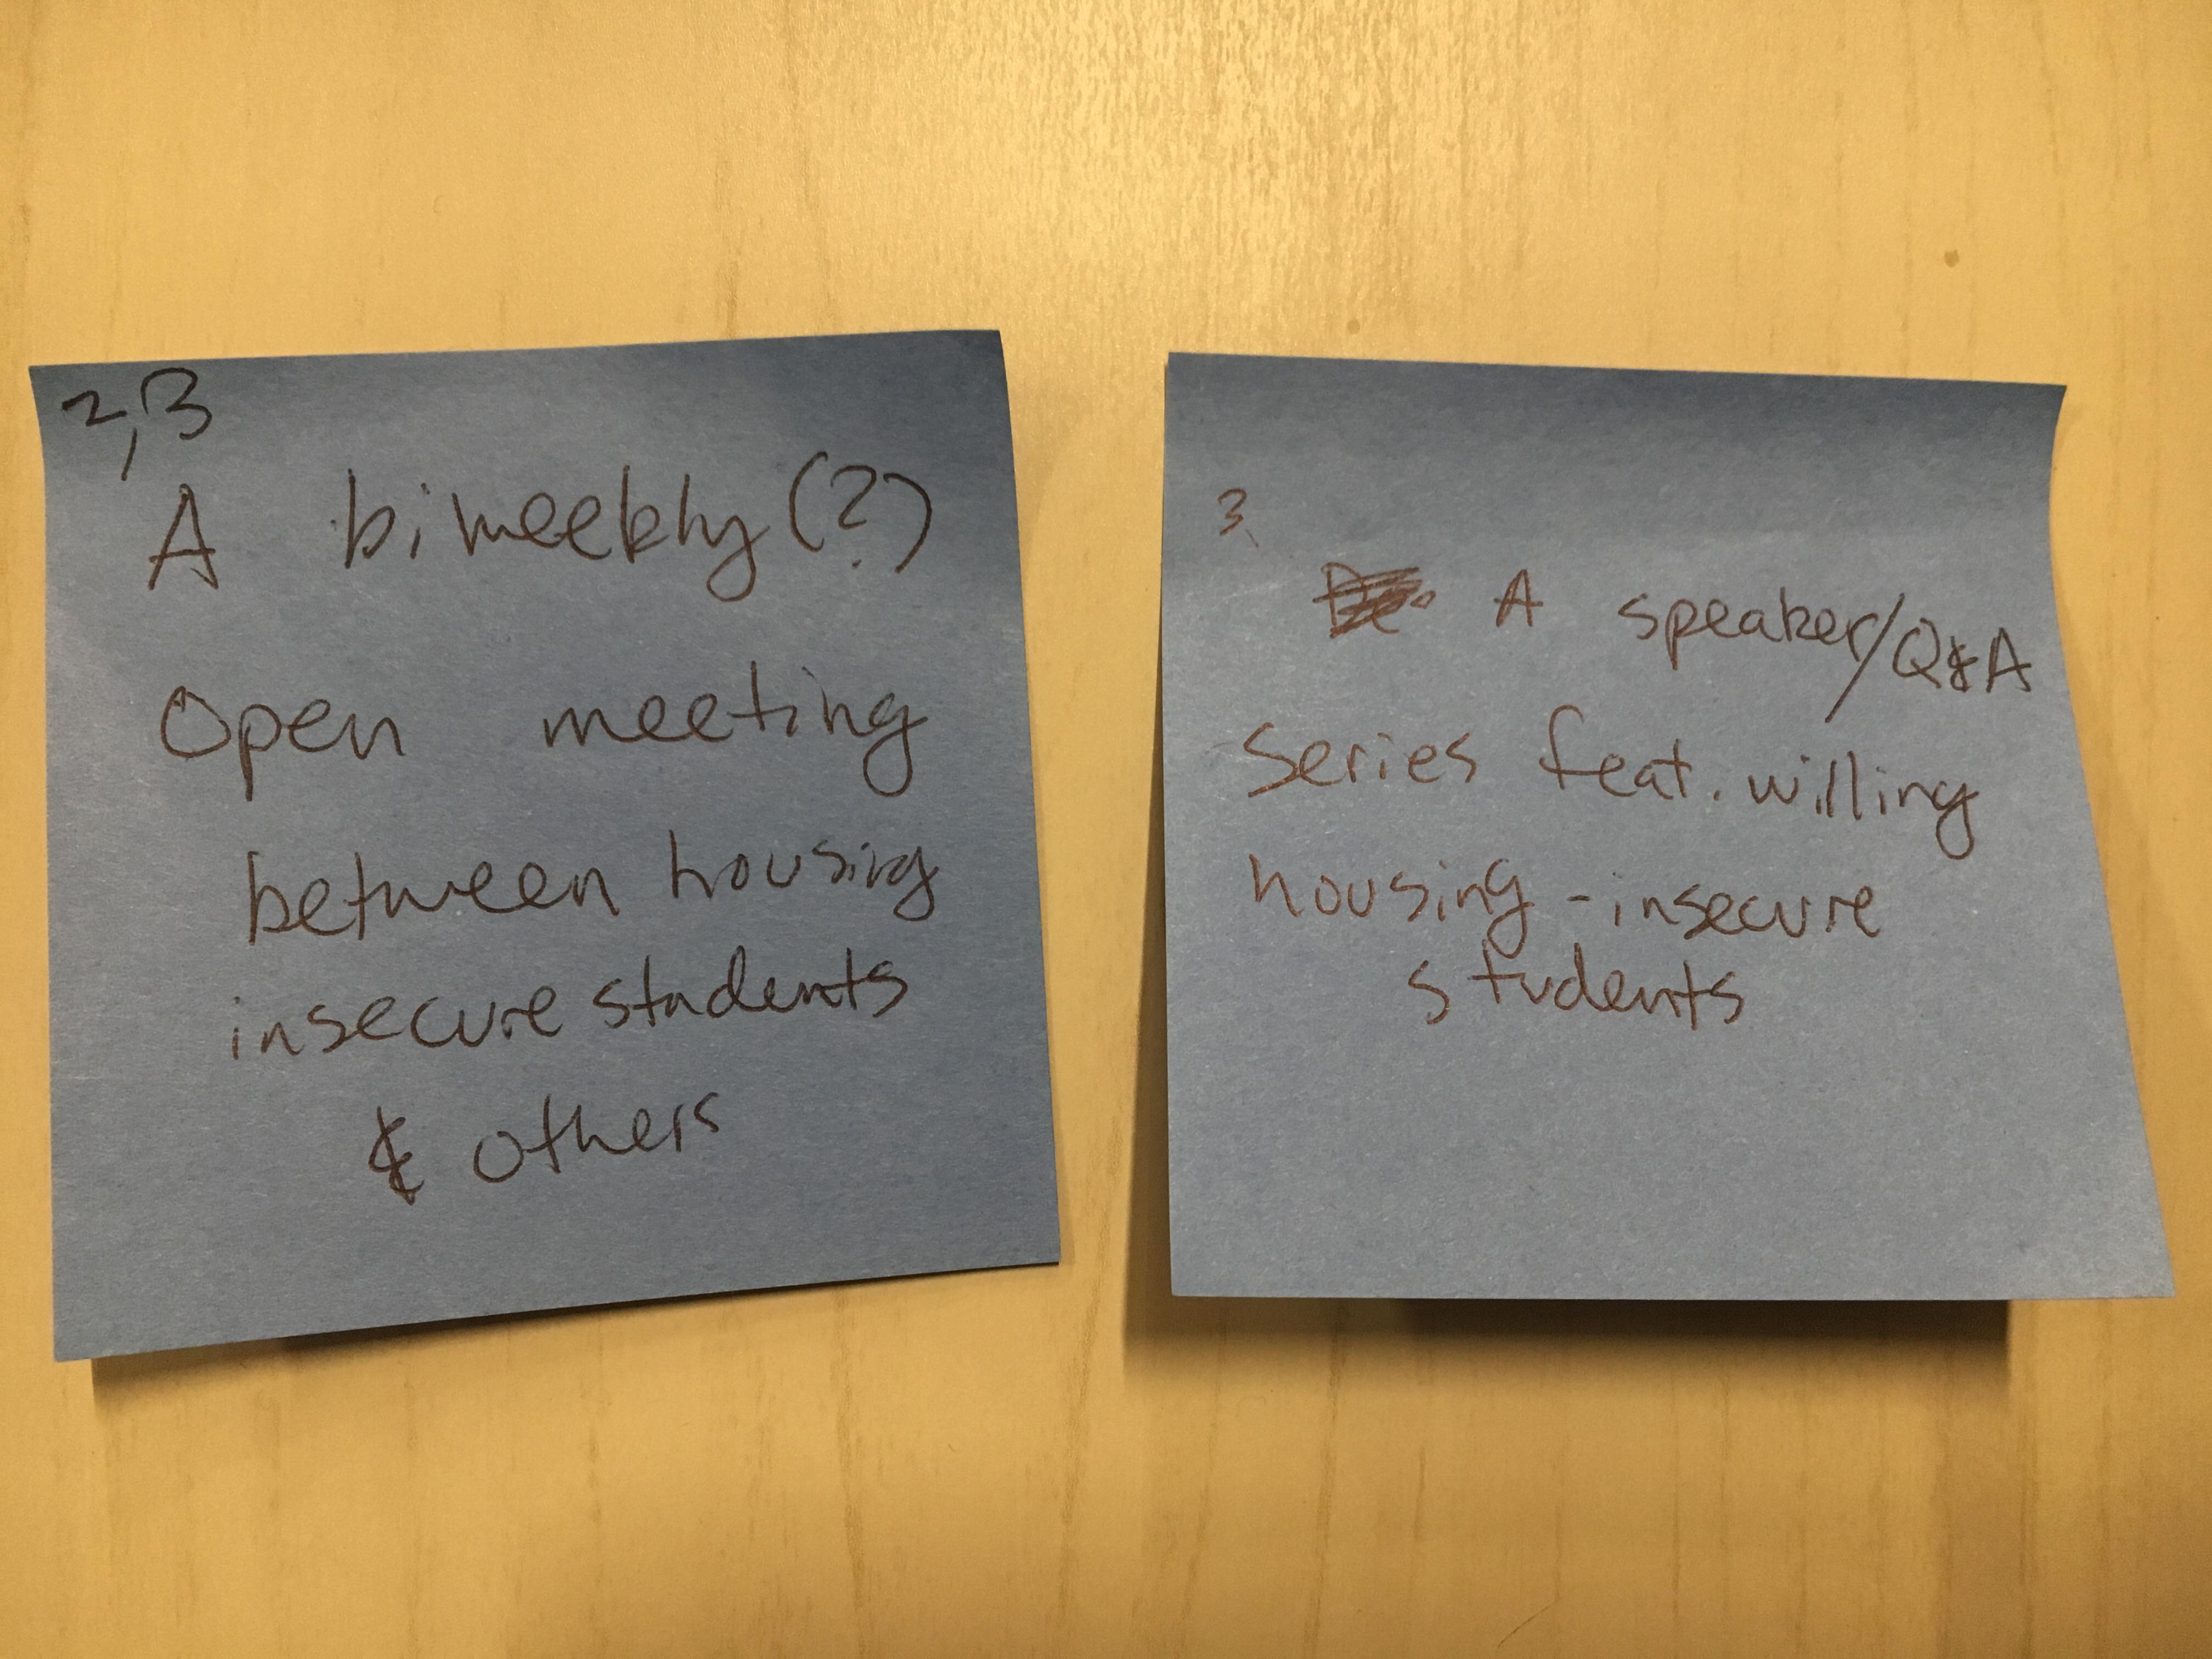 2,3
A biweekly(?)
Open meeting
between housing
insecure students
& others
3
A speaker/Q&A
series feat. willing
housing-insecure
students